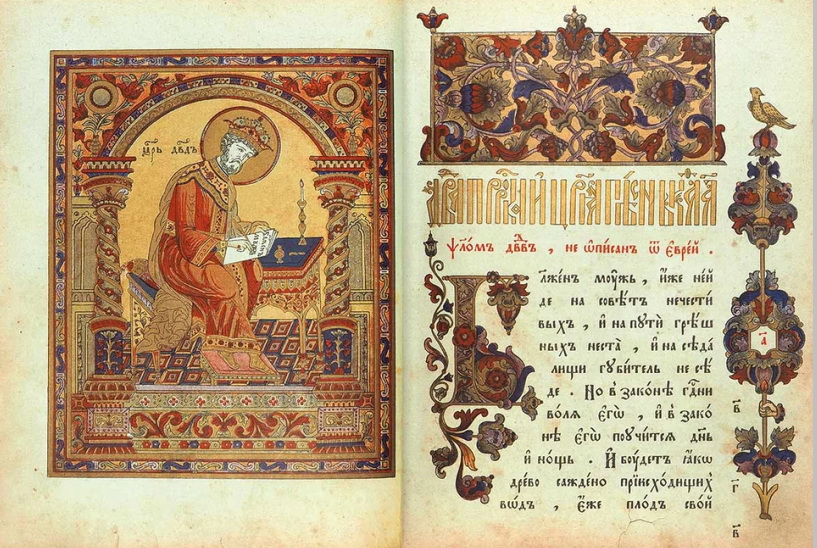 цр҃ь дв҃дъ
ѱл҃омъ дв҃дъ , не ѡпи́санъ ѿ є҆вре́й .
Бл҃же́нъ мѹ́жь , и҆́же не и҆́
де на совѣ́тъ нечести́
выхъ , и҆ на пути̑ грѣ́ш
ныхъ неста̀ , и҆ на сѣда́
лищи гꙋби́тель не сѣ́
де . Но в̾ зако́нѣ гдⷭ҇ни
во́лѧ є҆гѡ̀ , и҆ в̾ зако́
нѣ є҆гѡ̀ поꙋчи́тсѧ дн҃ь
и҆ но́щь . И҆ бѹ́детъ ꙗ҆́кѡ
дре́во сажде́но прїисхо́дищихъ
во́дъ , є҆́же пло́дъ сво́й
а҃
в҃
г҃
в҃